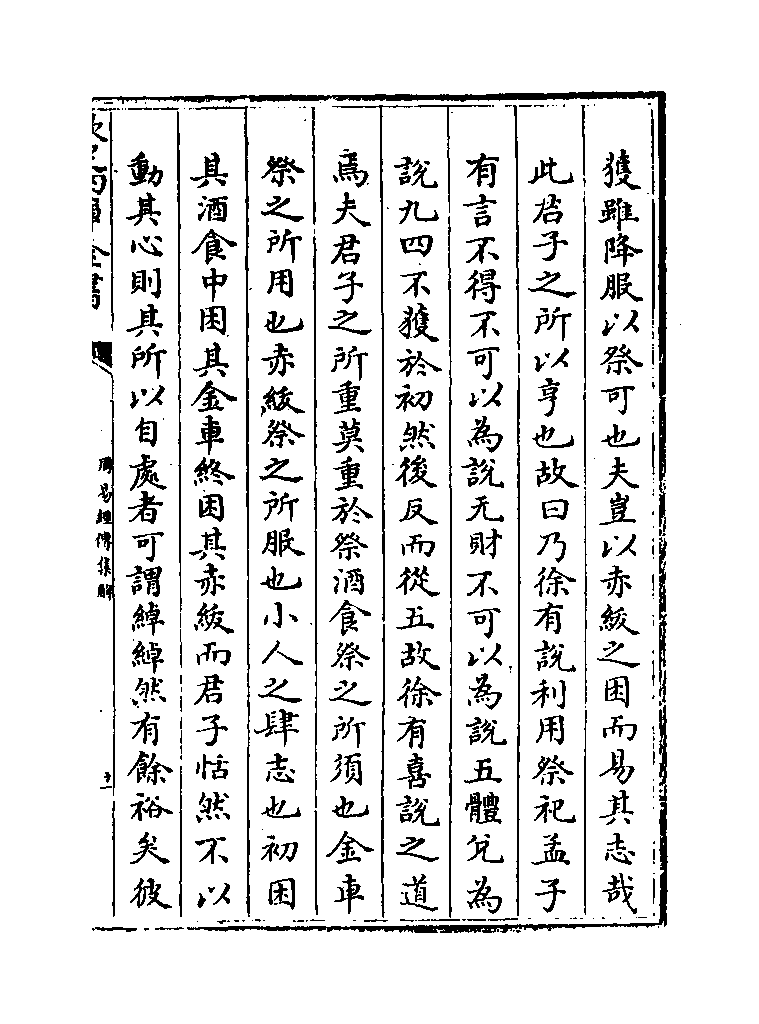 獲雖降服以祭可也夫豈以赤紱之困而易其志哉
此君子之所以亨也故曰乃徐有說利用祭祀孟子
有言不得不可以為說无財不可以為說五體兌為
說九四不獲於初然後反而從五故徐有喜說之道
焉夫君子之所重莫重於祭酒食祭之所須也金車
祭之所用也赤紱祭之所服也小人之肆志也初困
其酒食中困其金車終困其赤紱而君子恬然不以
動其心則其所以自處者可謂綽綽然有餘裕矣彼
周易經傳集解